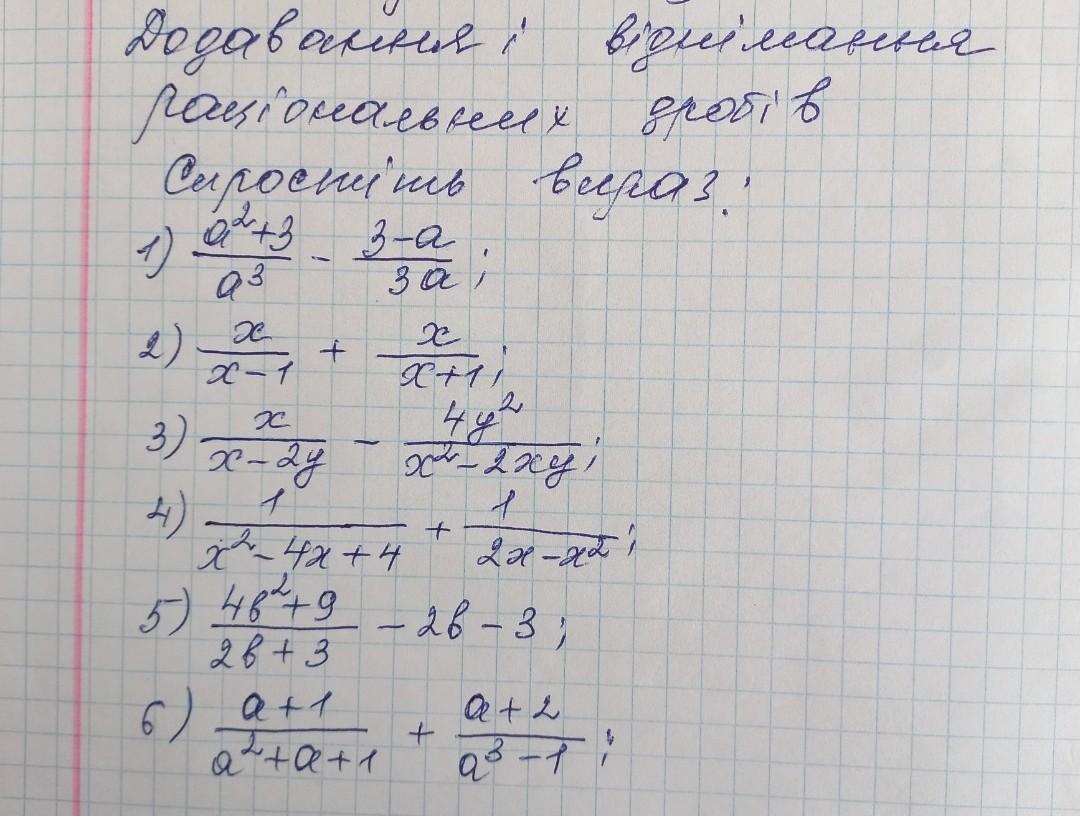 Додавання і віднімання
раціональних дробів
Спростіть вираз:
1) \frac{a^2+3}{a^3} - \frac{3-a}{3a};
2) \frac{x}{x-1} + \frac{x}{x+1};
3) \frac{x}{x-2y} - \frac{4y^2}{x^2-2xy};
4) \frac{1}{x^2-4x+4} + \frac{1}{2x-x^2};
5) \frac{4b^2+9}{2b+3} - 2b - 3;
6) \frac{a+1}{a^2+a+1} + \frac{a+2}{a^3-1};